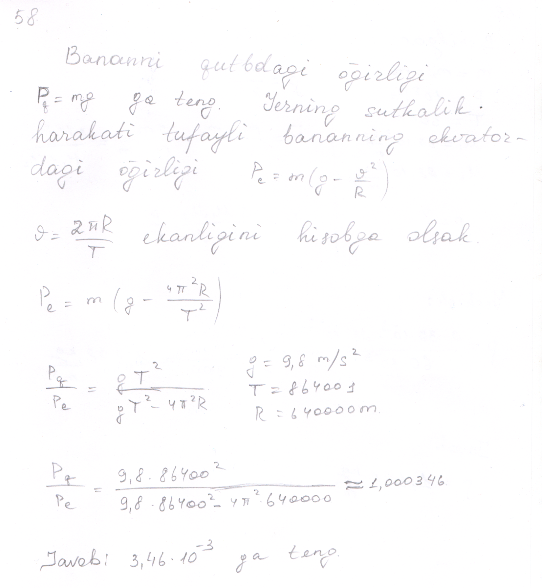 58
Bananni qutbdagi õgirligi
P_q = mg ga teng. Yerning sutkalik
harakati tufayli bananning ekvator-
dagi õgirligi P_e = m(g - ϑ²/R)
ϑ = 2πR/T ekanligini hisobga olsak.
P_e = m (g - 4π²R/T²)
P_q/P_e = gT²/(gT² - 4π²R) g = 9,8 m/s²
T = 86400 s
R = 640000 m
P_q/P_e = 9,8 · 86400²/(9,8 · 86400² - 4π² · 640000) ≈ 1,000346
Javob: 3,46 · 10⁻³ ga teng.